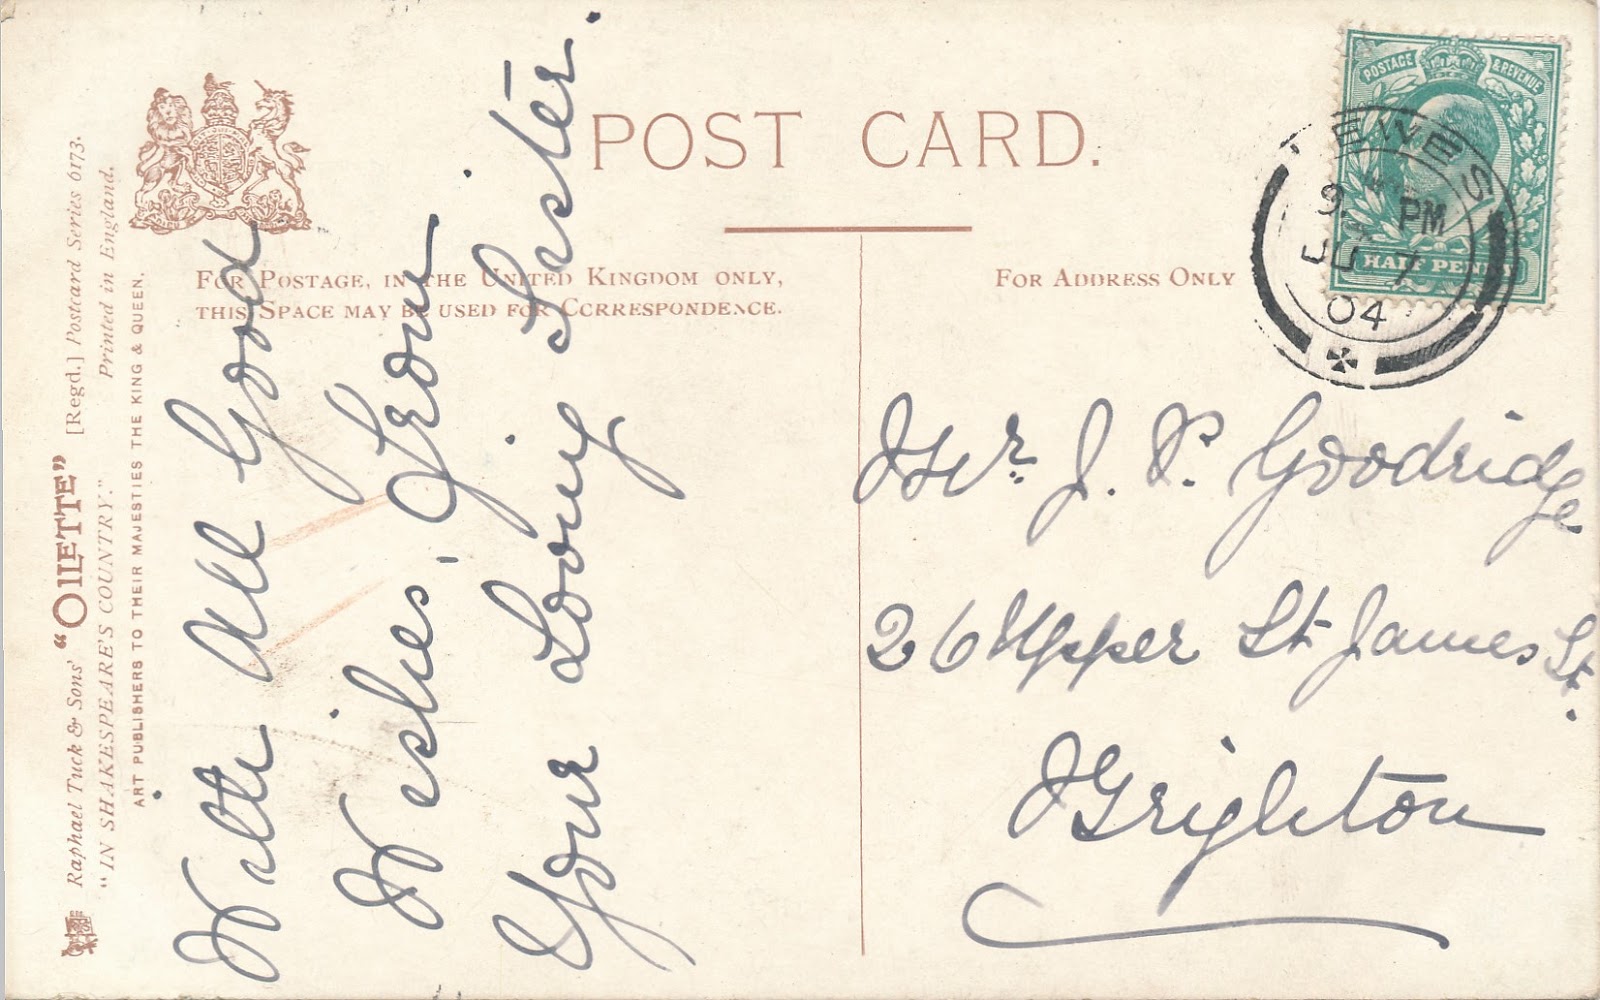 Raphael Tuck & Sons' "OILETTE" [Regd.] Postcard Series 6173.
"IN SHAKESPEARE'S COUNTRY." Printed in England.
ART PUBLISHERS TO THEIR MAJESTIES THE KING & QUEEN.
POST CARD.
FOR POSTAGE, IN THE UNITED KINGDOM ONLY,
THIS SPACE MAY BE USED FOR CORRESPONDENCE.
With All Good
Wishes. From
Your Loving Sister.
FOR ADDRESS ONLY
POSTAGE & REVENUE
HALF PENNY
LEWES
9. PM
JU 7
04
Mr. J. P. Goodridge
26 Upper St James St.
Brighton